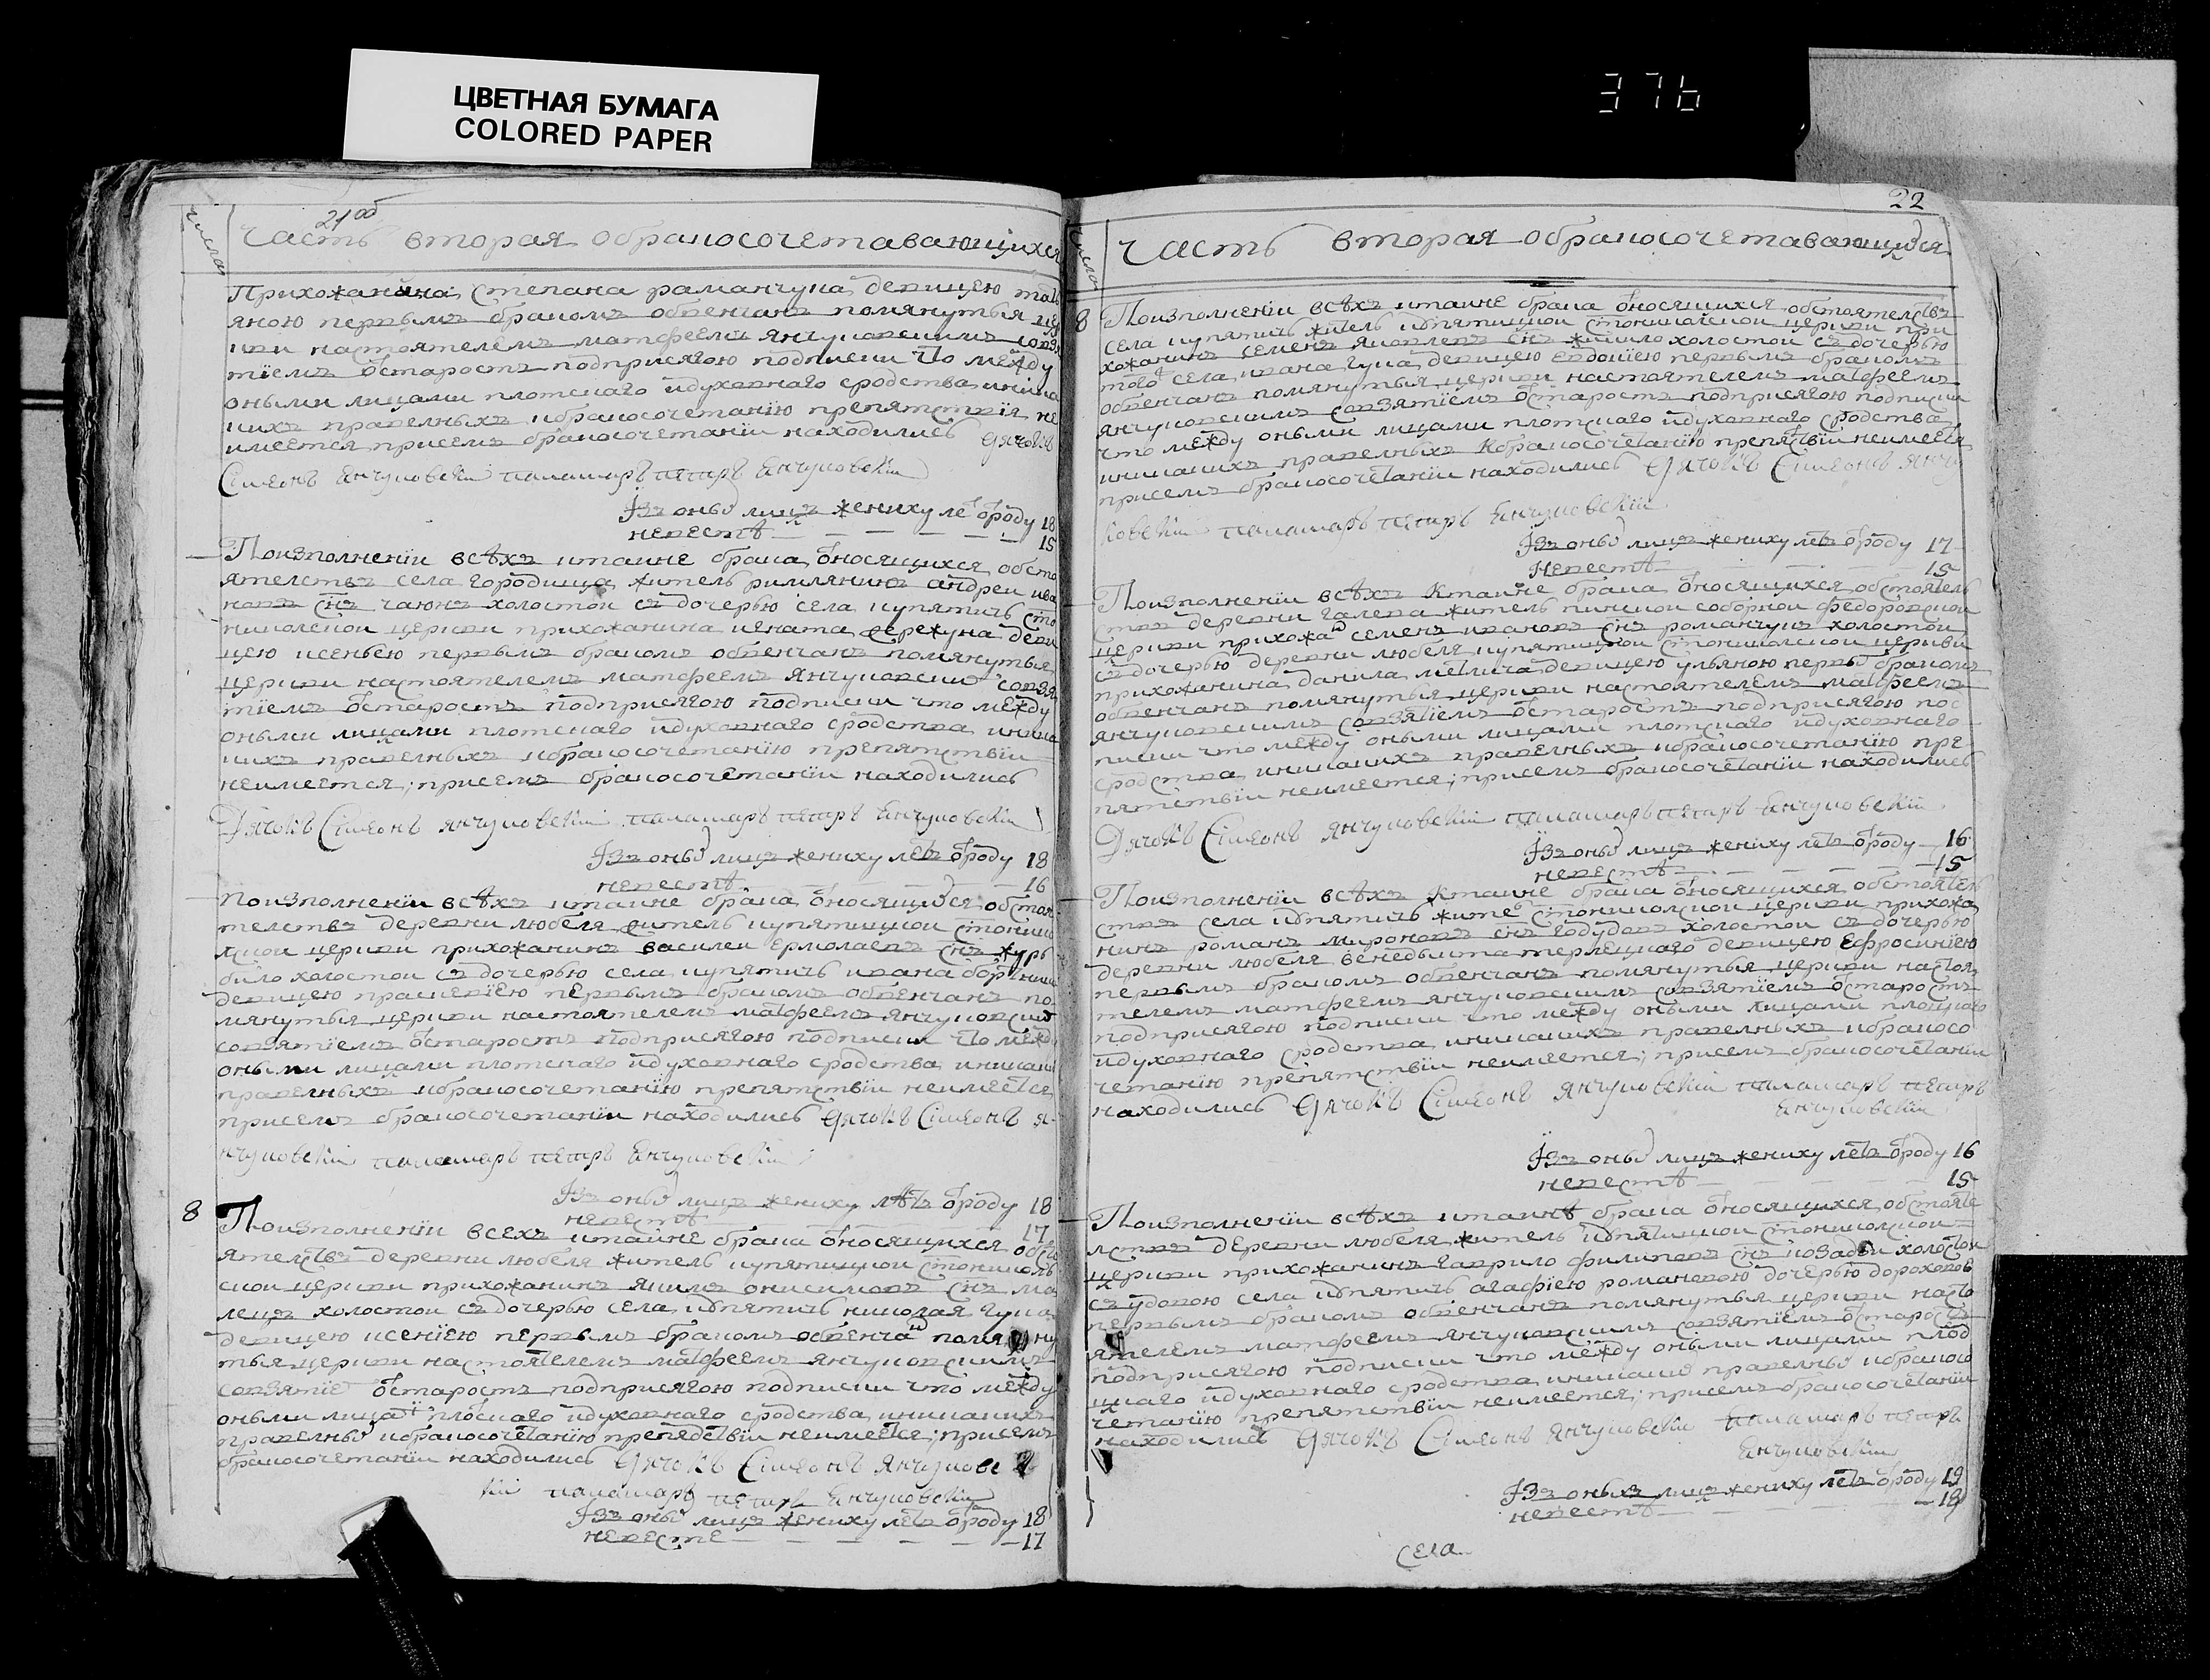 ЦВЕТНАЯ БУМАГА
COLORED PAPER
376
21 об
числа
Часть вторая обракосочетавающихся
Прихожанина Степана раманчука девицею
яною первымъ бракомъ обвенчанъ помянутыя
кви настоятелемъ матфеемъ янчуковскимъ
тіемъ отстаростъ подприсягою подписки что между
оными лицами плотскаго идуховнаго сродства
кихъ правелныхъ кбракосочетанію препятствія не
имеется присемъ бракосочетаніи находились Дячокъ
Сімеонъ Янчуковскій паламарь петръ Янчуковскій
Изъ оныхъ лицъ жениху летъ отроду 18
невестѣ 15
Поизполненіи всѣхъ ктаине брака относящихся обсто
ятелствъ села Городища житель римлянинъ андреи ива
новъ снъ чаюнъ холостои съ дочерью села купятичъ сто
николскои церкви прихожанина игната сережука деви
цею ксеньею первымъ бракомъ обвенчанъ помянутыя
церкви настоятелемъ матфеемъ Янчуковским совзя
тіемъ отстаростъ подприсягою подписки что между
оными лицами плотскаго идуховнаго сродства иника
кихъ правелныхъ кбракосочетанію препятствіи
неимеется; присемъ бракосочетаніи находились
Дячокъ Сімеонъ янчуковскій паламарь петръ Янчуковскій
Изъ оныхъ лицъ жениху летъ отроду 18
невестѣ 16
Поизполненіи всѣхъ ктаине брака относящихся обстоя
телствъ деревни любеля житель купятицкои стонико
лскои церкви прихожанинъ василеи Ермолаевъ снъ журъ
било холостои съ дочерью села купятичъ ивана
девицею прасковіею первымъ бракомъ обвенчанъ по
мянутыя церкви настоятелемъ матфеемъ янчуковским
совзятіемъ отстаростъ подприсягою подписки что между
оными лицами плотскаго идуховнаго сродства иникаких
правелныхъ кбракосочетанію препятствіи неимеется
присемъ бракосочетаніи находились Дячокъ Сімеонъ я-
нчуковскій паламарь петръ Янчуковскій
Изъ оныхъ лицъ жениху лѣтъ отроду 18
невестѣ 17
8 Поизполненіи всехъ ктаине брака относящихся обсто
ятелствъ деревни любеля житель купятицкои стониколь
скои церкви прихожанинъ якимъ онисимовъ снъ ма
лецъ холостои съ дочерью села купятичъ николая Гука
девицею ксеніею первымъ бракомъ обвенчан помяну
тыя церкви настоятелемъ матфеемъ янчуковскимъ
совзятіе отстаростъ подприсягою подписки что между
оными лицами плотскаго идуховнаго сродства иникакихъ
правелных кбракосочетанію препедствіи неимеется; присемъ
бракосочетаніи находились Дячокъ Сімеонъ Янчуковс
кій паламарь петръ Янчуковскій
Изъ оных лицъ жениху летъ отроду 18
невесте 17
22
числа
Часть вторая обракосочетавающихся
8 Поизполненіи всѣхъ ктаине брака относящихся обстоятелствъ
села купятичъ житель купятицкои стониколскои церкви при
хожанинъ семенъ яковлевъ снъ шило холостои съ дочерью
того села ивана гука девицею евдокіею первымъ бракомъ
обвенчанъ помянутыя церкви настоятелемъ матфеемъ
янчуковскимъ совзятіемъ отстаростъ подприсягою подписки
что между оными лицами плотскаго идуховнаго сродства
иникакихъ правелныхъ Кбракосочетанію препятствіи неимеется
присемъ бракосочетаніи находились Дячокъ Сімеонъ янчу
ковскій паламарь петръ Янчуковскій
Изъ оных лицъ жениху летъ отроду 17
невестѣ 15
Поизполненіи всѣхъ Ктаине брака относящихся обстоятель
ствъ деревни галева житель пинскои соборнои федоровскои
церкви прихожан семенъ ивановъ снъ романчукъ холостои
съ дочерью деревни любеля купятицкои стониколскои церкви
прихожанина данила девицею ульяною первы бракомъ
обвенчанъ помянутыя церкви настоятелемъ матфеемъ
янчуковскимъ совзятіемъ отстаростъ подприсягою под
писки что между оными лицами плотскаго идуховнаго
сродства иникакихъ правелныхъ кбракосочетанію пре
пятствіи неимеется; присемъ бракосочетаніи находились
Дячокъ Сімеонъ янчуковскій паламарь петръ Янчуковскій
Изъ оных лицъ жениху летъ отроду 16
невестѣ 15
Поизполненіи всѣхъ Ктаине брака относящихся обстоятел
ствъ села купятичъ жите стониколскои церкви прихожа
нинъ романъ мироновъ снъ холостои съ дочерью
деревни любеля венедыкта терлецкаго девицею Ефросиніею
первымъ бракомъ обвенчанъ помянутыя церкви настоя
телемъ матфеемъ янчуковскимъ совзятіемъ отстаростъ
подприсягою подписки что между оными лицами плотскаго
идуховнаго сродства иникакихъ правелныхъ кбракосо
четанію препятствіи неимеется; присемъ бракосочетаніи
находились Дячокъ Сімеонъ Янчуковскій паламарь петръ
Янчуковскій
Изъ оных лицъ жениху летъ отроду 16
невестѣ 15
Поизполненіи всѣхъ ктаинѣ брака относящихся обстояте
лствъ деревни любеля житель купятицкои стониколскои
церкви прихожанинъ гаврило филиповъ снъ холостои
съ удовою села купятичъ агафіею романовою дочерью
первымъ бракомъ обвенчанъ помянутыя церкви насто
ятелемъ матфеемъ янчуковскимъ совзятіемъ отстаростъ
подприсягою подписки что между оными лицами плод
цкаго идуховнаго сродства иникаких правелных кбракосо
четанію препятствіи неимеется; присемъ бракосочетаніи
находились Дячокъ Сімеонъ Янчуковскій паламарь петръ
Янчуковскій
Изъ оныхъ лицъ жениху летъ отроду 19
невестѣ 18
села